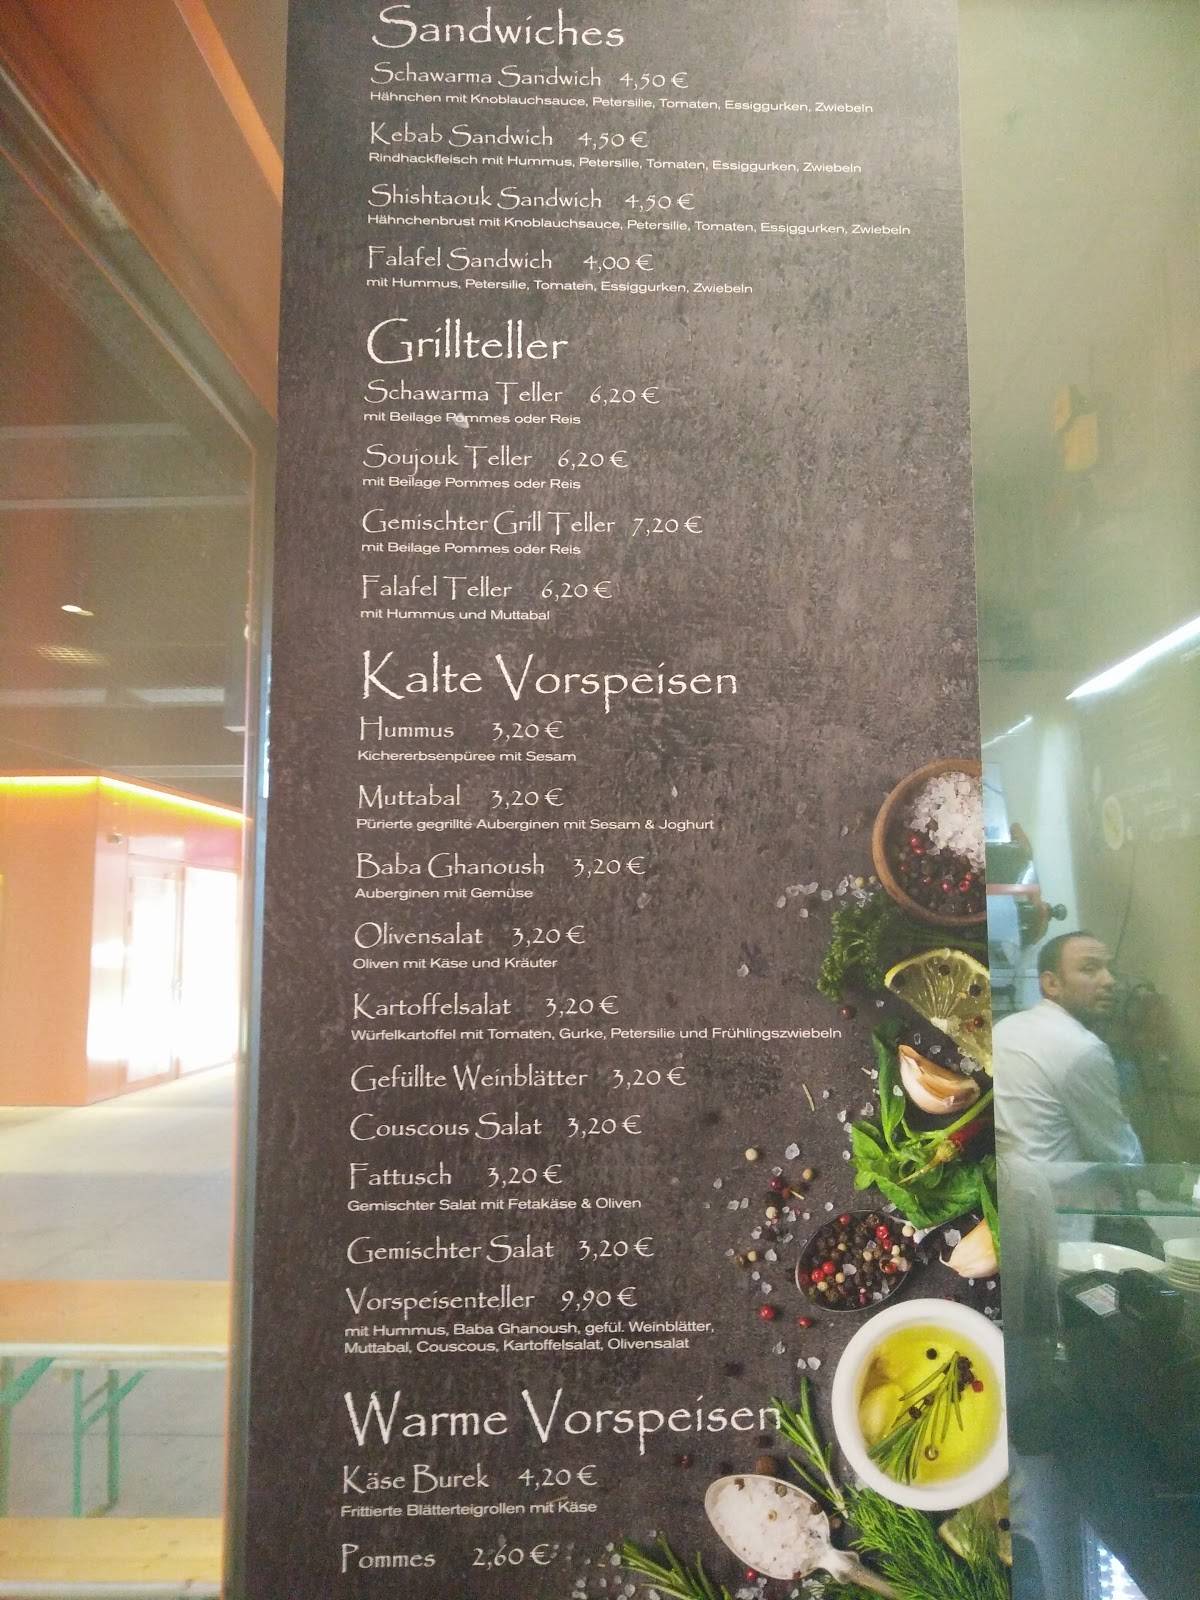 Sandwiches
Schawarma Sandwich 4,50 €
Hähnchen mit Knoblauchsauce, Petersilie, Tomaten, Essiggurken, Zwiebeln
Kebab Sandwich 4,50 €
Rindhackfleisch mit Hummus, Petersilie, Tomaten, Essiggurken, Zwiebeln
Shishtaouk Sandwich 4,50 €
Hähnchenbrust mit Knoblauchsauce, Petersilie, Tomaten, Essiggurken, Zwiebeln
Falafel Sandwich 4,00 €
mit Hummus, Petersilie, Tomaten, Essiggurken, Zwiebeln
Grillteller
Schawarma Teller 6,20 €
mit Beilage Pommes oder Reis
Soujouk Teller 6,20 €
mit Beilage Pommes oder Reis
Gemischter Grill Teller 7,20 €
mit Beilage Pommes oder Reis
Falafel Teller 6,20 €
mit Hummus und Muttabal
Kalte Vorspeisen
Hummus 3,20 €
Kichererbsenpüree mit Sesam
Muttabal 3,20 €
Pürierte gegrillte Auberginen mit Sesam & Joghurt
Baba Ghanoush 3,20 €
Auberginen mit Gemüse
Olivensalat 3,20 €
Oliven mit Käse und Kräuter
Kartoffelsalat 3,20 €
Würfelkartoffel mit Tomaten, Gurke, Petersilie und Frühlingszwiebeln
Gefüllte Weinblätter 3,20 €
Couscous Salat 3,20 €
Fattusch 3,20 €
Gemischter Salat mit Fetakäse & Oliven
Gemischter Salat 3,20 €
Vorspeisenteller 9,90 €
mit Hummus, Baba Ghanoush, gefül. Weinblätter,
Muttabal, Couscous, Kartoffelsalat, Olivensalat
Warme Vorspeisen
Käse Burek 4,20 €
Frittierte Blätterteigrollen mit Käse
Pommes 2,60 €